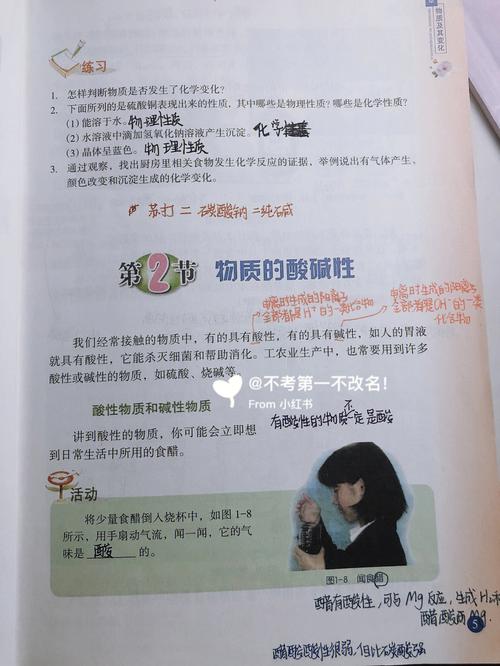 物质及其变化
练习
1. 怎样判断物质是否发生了化学变化?
2. 下面所列的是硫酸铜表现出来的性质,其中哪些是物理性质?哪些是化学性质?
(1) 能溶于水。物理性质
(2) 水溶液中滴加氢氧化钠溶液产生沉淀。化学性
(3) 晶体呈蓝色。物理性质
3. 通过观察,找出厨房里相关食物发生化学反应的证据,举例说出有气体产生、
颜色改变和沉淀生成的化学变化。
苏打 = 碳酸钠 = 纯碱
第2节 物质的酸碱性
电离时生成的阳离子
全部都是H⁺的一类化合物
电离时生成的阴离子
全部都是OH⁻的一类
化合物
我们经常接触的物质中,有的具有酸性,有的具有碱性,如人的胃液
就具有酸性,它能杀灭细菌和帮助消化。工农业生产中,也常要用到许多
酸性或碱性的物质,如硫酸、烧碱等。
@不考第一不改名!
From 小红书
酸性物质和碱性物质
有酸性的物质不一定是酸
讲到酸性的物质,你可能会立即想
到日常生活中所用的食醋。
活动
将少量食醋倒入烧杯中,如图1-8
所示,用手扇动气流,闻一闻,它的气
味是 酸 的。
图1-8 闻食醋
醋有酸性,可与Mg反应,生成H₂和
醋酸Mg.
5
醋酸酸性很弱,但比碳酸强